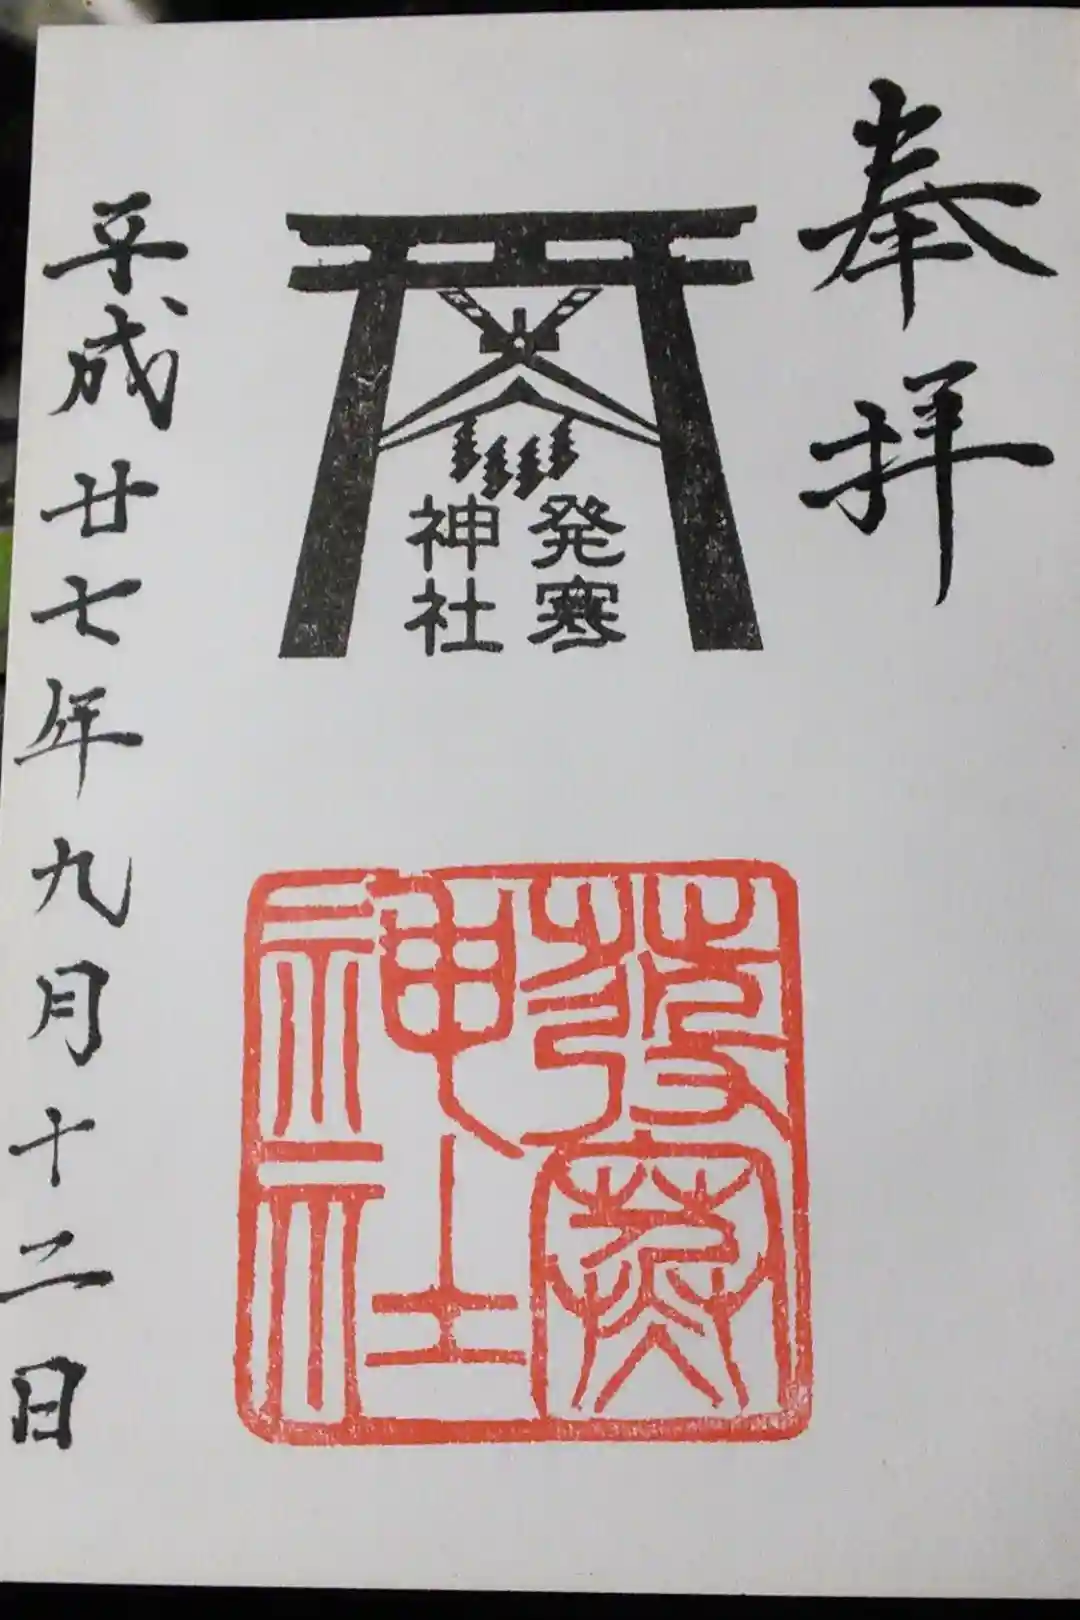 奉拝
発寒
神社
發寒
神社
平成廿七年九月十二日